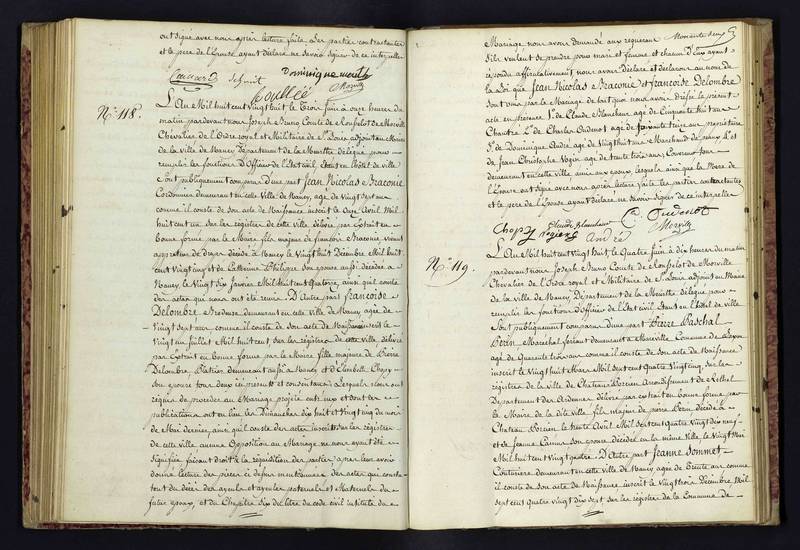 ont signé avec nous après lecture faite. Les parties contractantes
et le père de l'épouse ayant déclaré ne savoir signer de ce interpellés
Schmit Dominique
Morville
N.º 118.
L'An Mil huit cent vingt huit le Trois juin à onze heures du
matin pardevant nous Joseph Bruno Comte de Rousselot de Morville
Chevalier de l'Ordre royal et Militaire de St. Louis adjoint au Maire
de la ville de Nancy Département de la Meurthe délégué pour
remplir les fonctions d'Officier de l'État civil, étant en l'hôtel de ville
Sont publiquement comparus D'une part Jean Nicolas Braconié
Cordonnier demeurant en cette Ville de Nancy, agé de Vingt sept ans
comme il conste de son acte de Naissance inscrit le Onze Avril Mil
huit cent un sur les registres de cette ville délivré par Extrait en
bonne forme par le Maire fils majeur de Braconié vivant
de draps décédé à Nancy le Vingt Décembre Mil huit
cent Vingt et de Catherine son épouse aussi décédée à
Nancy, le Vingt Six Janvier Mil huit cent Quatorze, ainsi qu'il conste
des actes qui nous ont été remis. D'Autre part françoise
Delombre Brodeuse, demeurant en cette Ville de Nancy agée de
Vingt sept ans comme il conste de son acte de Naissance inscrit le
Vingt un juillet Mil huit cent sur les registres de cette ville, délivré
par Extrait en bonne forme par le Maire, fille majeure de Pierre
Delombre, Platrier demeurant aussi à Nancy et d'Elisabeth Chopy
son épouse tous deux ci présents et consentants. Lesquels nous ont
requis de procéder au Mariage projeté entre eux et dont les
publications ont eu lieu les Dimanches dix huit et Vingt cinq du mois
de Mai dernier, ainsi qu'il conste des actes inscrits sur les registres
de cette ville aucune Opposition au Mariage ne nous ayant été
signifiée faisant droit à la réquisition des parties, après leur avoir
donné lecture des pièces ci dessus mentionnées, des actes qui constatent
tout du décès des ayeuls et ayeules paternels et Maternels du
futur époux, et du Chapitre Six du titre du code civil intitulé du
Mariage, nous avons demandé aux requérans
S'ils veulent se prendre pour mari et femme et chacun D'Eux ayant
répondu affirmativement nous avons déclaré et déclarons au nom de
la Loi que Jean Nicolas Braconié et françoise Delombre
Sont unis par le Mariage de tout quoi nous avons dressé le présent
acte en présence Sr. Claude Blancheur agé de Cinquante huit ans
Chantre Sr. Charles Oudenot agé de soixante treize ans propriétaire
Sr. Dominique André agé de Vingt huit ans Marchand de peaux Et
de Jean Christophe Rogier agé de trente trois ans, Couvreur tous
demeurant en cette Ville, amis aux époux, lesquels ainsi que la Mère de
l'Epouse ont signé avec nous après lecture faite, les parties contractantes
et le père de l'Epouse, ayant déclaré, ne savoir signer de ce interpellés
Chopy Claude Blancheur C. Oudenot
rogier andré Morville
N.º 119.
L'An Mil huit cent vingt huit le Quatre Juin à dix heures du matin
pardevant nous Joseph Bruno Comte de Rousselot de Morville
Chevalier de l'Ordre royal et Militaire de St. Louis adjoint au Maire
de la ville de Nancy, Département de la Meurthe délégué pour
remplir les fonctions d'Officier de l'État civil, étant en l'hôtel de ville
Sont publiquement comparus D'une part Pierre Paschal
Périn, Maréchal ferrant demeurant à Maxéville Commune de
agé de Quarante trois ans comme il conste de son acte de Naissance
inscrit le Vingt huit Mars Mil Sept cent Quatre Vingt cinq, sur les
registres de la ville de Chateau Porcien Arrondissement de Rethel
Département des Ardennes délivré par extrait en bonne forme par
le Maire de la dite Ville fils majeur de pierre Périn, décédé à
Chateau Porcien le trente Avril Mil Sept cent quatre Vingt dix neuf
et de Jeanne son épouse décédée en la même ville, le Vingt
Mil huit cent Vingt quatre. D'Autre part Jeanne Sommet
Couturière demeurant en cette ville de Nancy agée de Trente ans comme
il conste de son acte de Naissance inscrit le Vingt trois Décembre Mil
sept cent quatre Vingt dix sept sur les registres de la Commune de